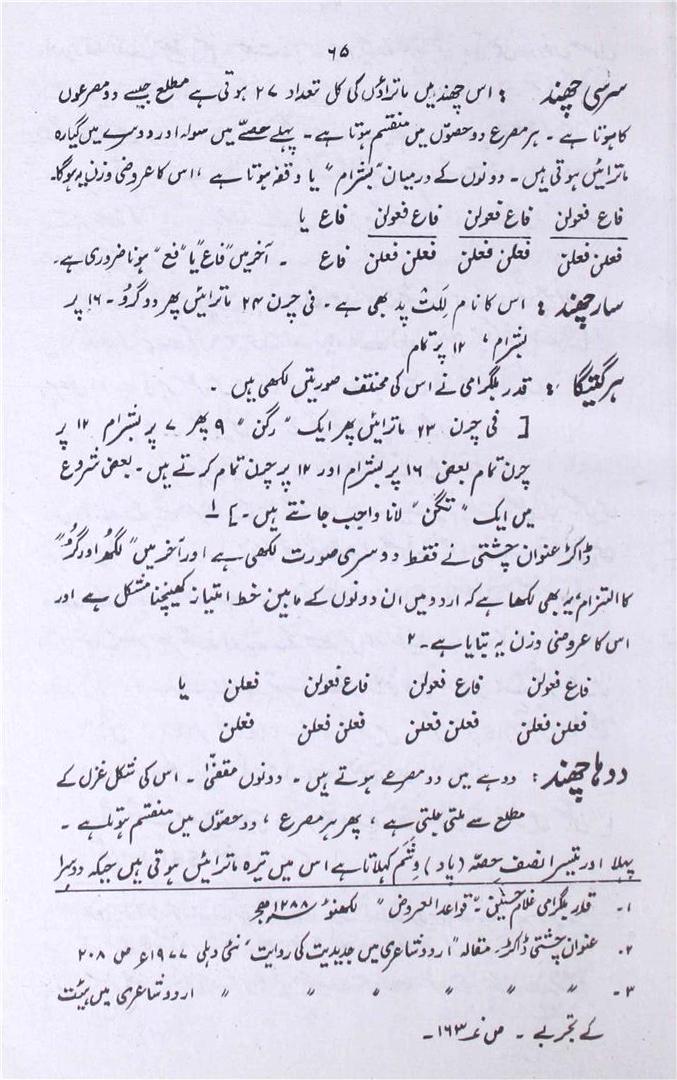 ۶۵
سرسی چھند : اس چھند میں ماتراؤں کی کل تعداد ۲۷ ہوتی ہے مطلع جیسے دو مصرعوں
کا ہوتا ہے ۔ ہر مصرع دو حصوں میں منقسم ہوتا ہے ۔ پہلے حصے میں سولہ اور دوسرے میں گیارہ
ماترائیں ہوتی ہیں ۔ دونوں کے درمیان "بشرام" یا وقفہ ہوتا ہے ، اس کا عروضی وزن یہ ہوگا۔
فاع فعولن فاع فعولن فاع فعولن فاع یا
فعلن فعلن فعلن فعلن فعلن فعلن فاع ۔ آخر میں "فاع" یا "فع" ہونا ضروری ہے۔
سار چھند : اس کا نام للت پد بھی ہے ۔ فی چرن ۲۴ ماترائیں پھر دو گرو ۔ ۱۶ پر
بشرام ، ۱۲ پر تمام
ہر گیتکا : قدر بلگرامی نے اس کی مختلف صورتیں لکھی ہیں ۔
[ فی چرن ۲۳ ماترائیں پھر ایک "رگن" ۹ پھر ۷ پر بشرام ۱۲ پر
چرن تمام بعض ۱۶ پر بشرام اور ۱۲ پر چرن تمام کرتے ہیں ۔ بعض شروع
میں ایک "تگن" لانا واجب جانتے ہیں ۔ ] ۱
ڈاکٹر عنوان چشتی نے فقط دوسری صورت لکھی ہے اور آخر میں "لگھو اور گرو"
کا التزام ، یہ بھی لکھا ہے کہ اردو میں ان دونوں کے مابین خط امتیاز کھینچنا مشکل ہے اور
اس کا عروضی وزن یہ بتایا ہے ۔ ۲
فاع فعولن فاع فعولن فاع فعولن فعلن یا
فعلن فعلن فعلن فعلن فعلن فعلن فعلن
دوہا چھند : دوہے میں دو مصرعے ہوتے ہیں ۔ دونوں مقفیٰ ۔ اس کی شکل غزل کے
مطلع سے ملتی جلتی ہے ، پھر ہر مصرع ، دو حصوں میں منقسم ہوتا ہے ۔
پہلا اور تیسرا نصف حصہ (پاد) وشم کہلاتا ہے اس میں تیرہ ماترائیں ہوتی ہیں جبکہ دوسرا
۱۔ قدر بلگرامی غلام حسنین ۔ "قواعد العروض" لکھنؤ ۱۲۸۸ ہجر
۲۔ عنوان چشتی ڈاکٹر، مقالہ "اردو شاعری میں جدیدیت کی روایت" نئی دہلی ۱۹۷۷ء ص ۲۰۸
۳۔ " " " " " " " اردو شاعری میں ہیئت
کے تجربے ۔ ص نمبر ۱۶۳۔